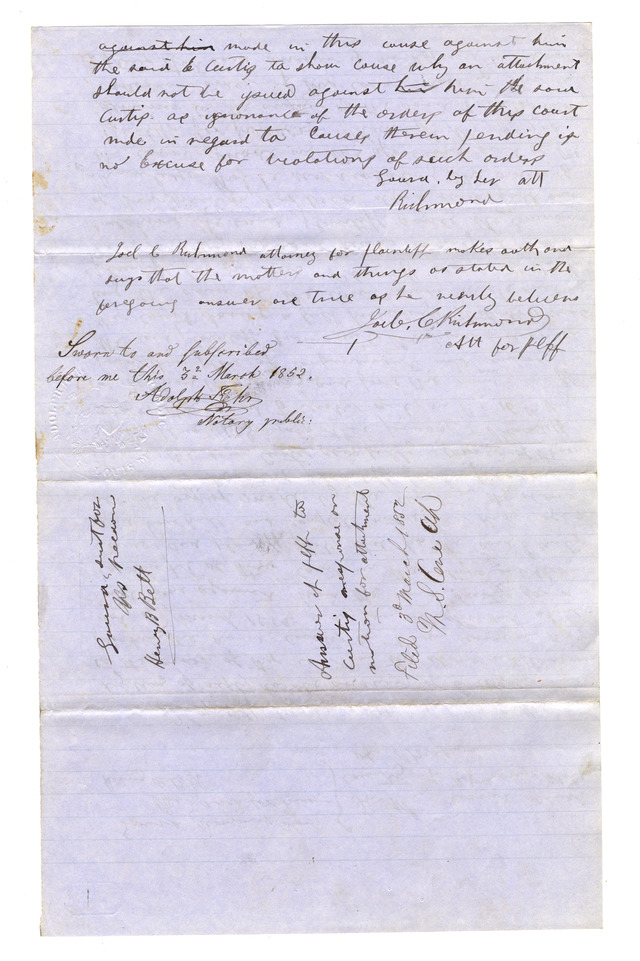 against him made in this cause against him
the said C Curtis to show cause why an attachment
should not be issued against his him the said
Curtis. as ignorance of the orders of this court
made in regard to Causes therein pending is
no Excuse for violations of such orders
by her att
Richmond
Joel C Richmond attorney for plaintiff makes oath and
says that the matters and things as stated in the
foregoing answer are true as he verily believes
Joel C Richmond
Att for plff
Sworn to and subscribed
before me this 3d March 1852.
Adolph
Notary public:
vs
Henry B Bett
Answer of plff to
Curtis response on
motion for attachment
Filed 3d March 1852